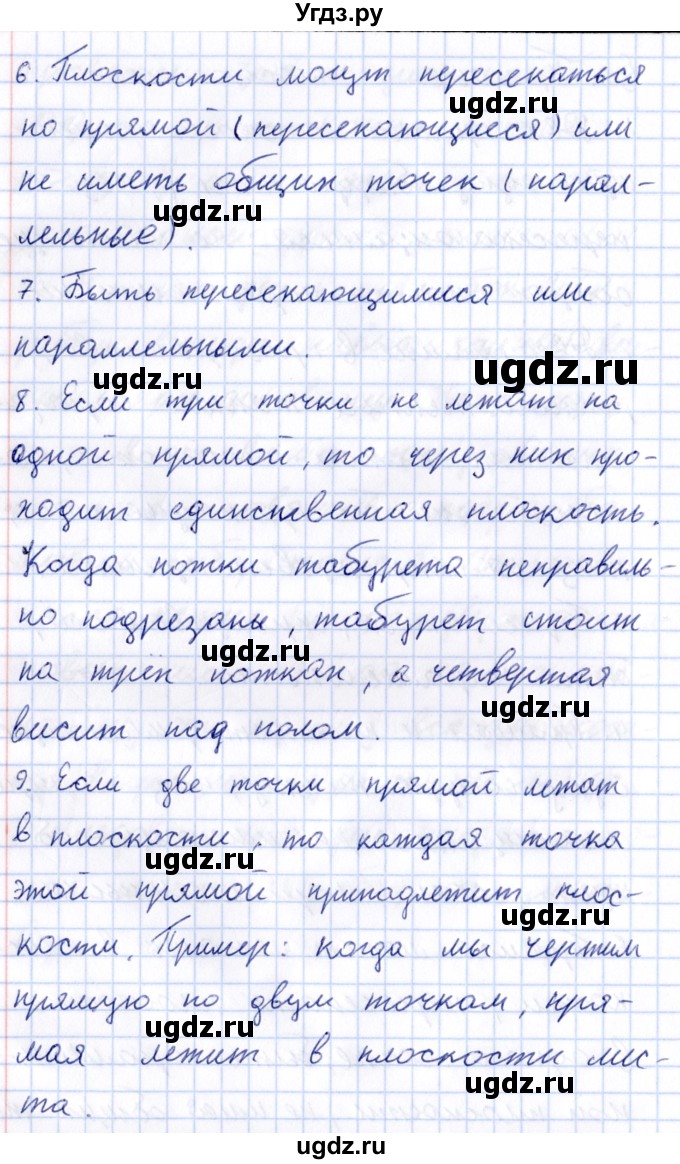 Угдз.ру
6. Плоскости могут пересекаться
ugdz.ru
по прямой (пересекающиеся) или
не иметь общих точек (парал-
ugdz.ru
лельные).
7. Быть пересекающимися или
параллельными.
ugdz.ru
ugdz.ru
8. Если три точки не лежат на
одной прямой, то через них про-
ходит единственная плоскость.
ugdz.ru
Когда ножки табурета неправиль-
но подрезаны, табурет стоит
ugdz.ru
на трёх ножках, а четвертая
ugdz.ru
висит над полом.
9. Если две точки прямой лежат
в плоскости, то каждая точка
ugdz.ru
этой прямой принадлежит плос-
ugdz.ru
кости. Пример: когда мы чертим
прямую по двум точкам, пря-
ugdz.ru
мая лежит в плоскости лис-
ugdz.ru
та.
ugdz.ru